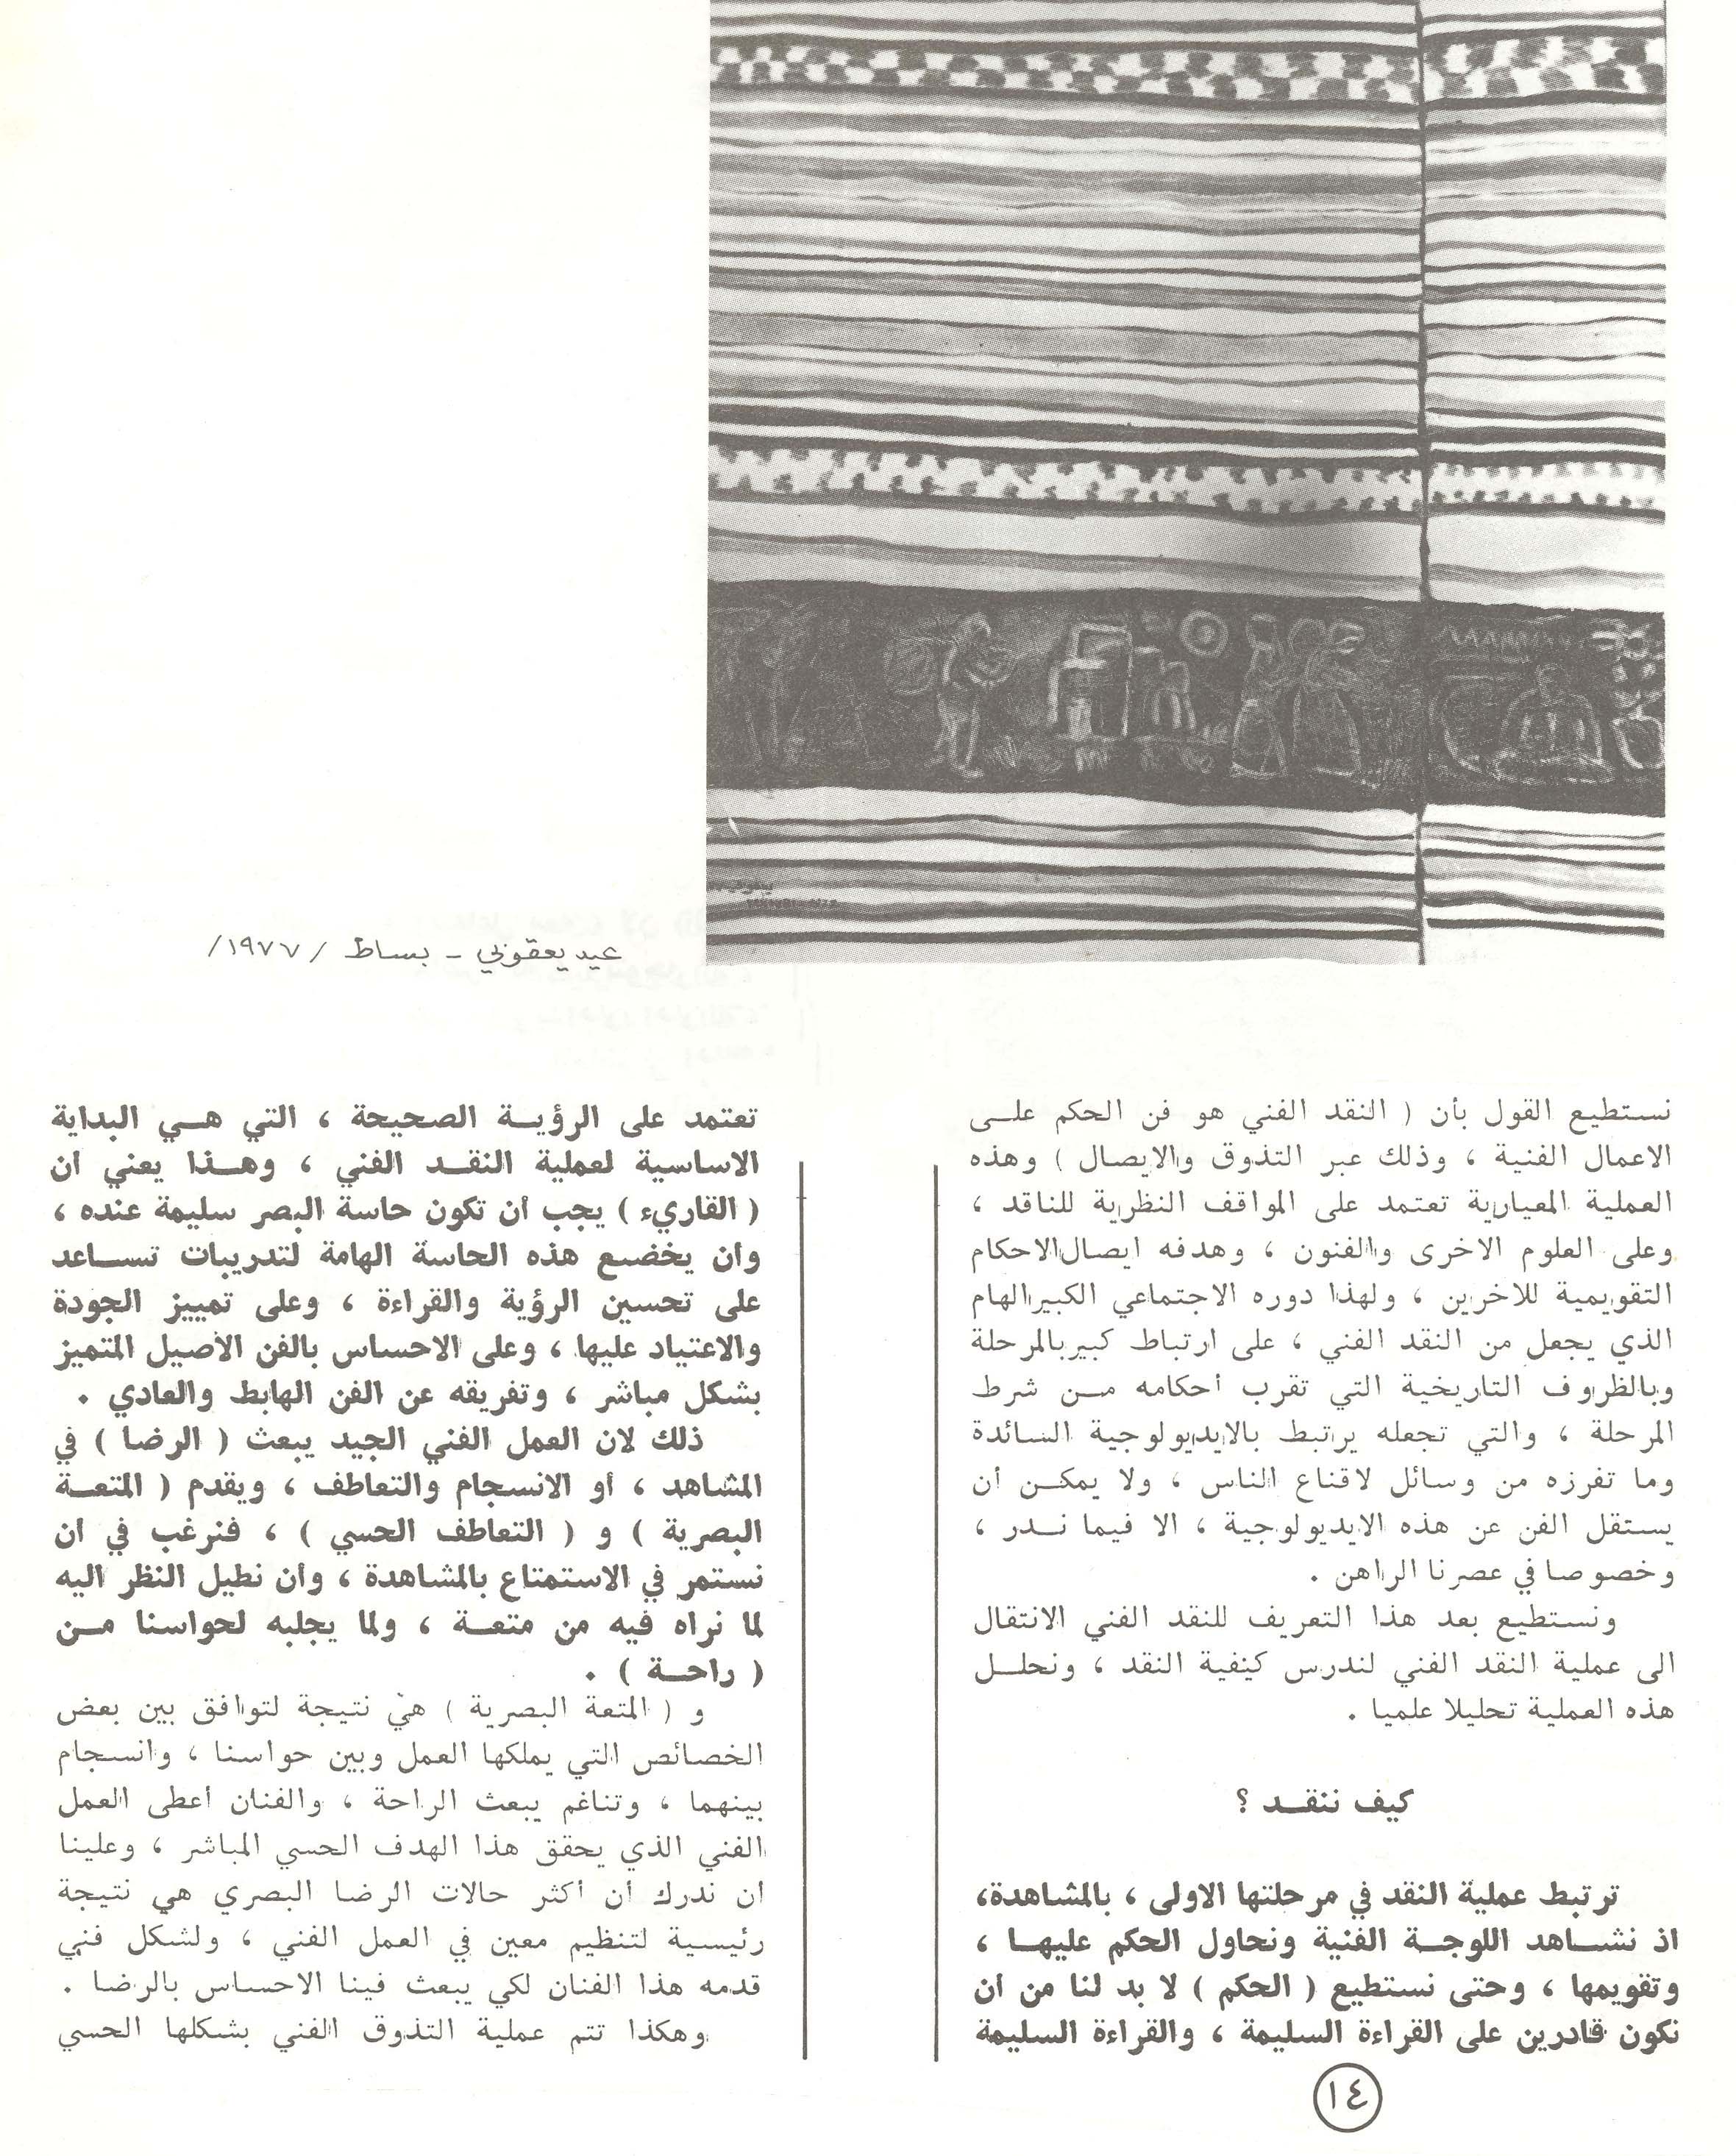 عيد يعقوبي - بساط /١٩٧٧/
نستطيع القول بأن ( النقد الفني هو فن الحكم علـى
الاعمال الفنية ، وذلك عبر التذوق والايصال ) وهذه
العملية المعيارية تعتمد على المواقف النظرية للناقد ،
وعلى العلوم الاخرى والفنون ، وهدفه ايصال الاحكام
التقويمية للاخرين ، ولهذا دوره الاجتماعي الكبير الهام
الذي يجعل من النقد الفني ، على ارتباط كبير بالمرحلة
وبالظروف التاريخية التي تقرب أحكامه مـن شرط
المرحلة ، والتي تجعله يرتبط بالايديولوجية السائدة
وما تفرزه من وسائل لاقناع الناس ، ولا يمكـن أن
يستقل الفن عن هذه الايديولوجية ، الا فيما نـدر ،
وخصوصا في عصرنا الراهن .
ونستطيع بعد هذا التعريف للنقد الفني الانتقال
الى عملية النقد الفني لندرس كيفية النقد ، ونحلـل
هذه العملية تحليلا علميا .
كيف ننقـد ؟
ترتبط عملية النقد في مرحلتها الاولى ، بالمشاهدة،
اذ نشـاهد اللوحـة الفنية ونحاول الحكم عليهـا ،
وتقويمها ، وحتى نستطيع ( الحكم ) لا بد لنا من ان
نكون قادرين على القراءة السليمة ، والقراءة السليمة
تعتمد على الرؤيـة الصحيحة ، التي هـي البداية
الاساسية لعملية النقـد الفني ، وهـذا يعني ان
( القاريء ) يجب أن تكون حاسة البصر سليمة عنده ،
وان يخضع هذه الحاسة الهامة لتدريبات تسـاعد
على تحسين الرؤية والقراءة ، وعلى تمييز الجودة
والاعتياد عليها ، وعلى الاحساس بالفن الأصيل المتميز
بشكل مباشر ، وتفريقه عن الفن الهابط والعادي .
ذلك لان العمل الفني الجيد يبعث ( الرضا ) في
المشاهد ، أو الانسجام والتعاطف ، ويقدم ( المتعـة
البصرية ) و ( التعاطف الحسي ) ، فنرغب في ان
نستمر في الاستمتاع بالمشاهدة ، وان نطيل النظر اليه
لما نراه فيه من متعـة ، ولما يجلبه لحواسنا مـن
( راحـة ) .
و ( المتعة البصرية ) هي نتيجة لتوافق بين بعض
الخصائص التي يملكها العمل وبين حواسنا ، وانسجام
بينهما ، وتناغم يبعث الراحة ، والفنان أعطى العمل
الفني الذي يحقق هذا الهدف الحسي المباشر ، وعلينا
ان ندرك أن أكثر حالات الرضا البصري هي نتيجة
رئيسية لتنظيم معين في العمل الفني ، ولشكل فني
قدمه هذا الفنان لكي يبعث فينا الاحساس بالرضا .
وهكذا تتم عملية التذوق الفني بشكلها الحسي
١٤